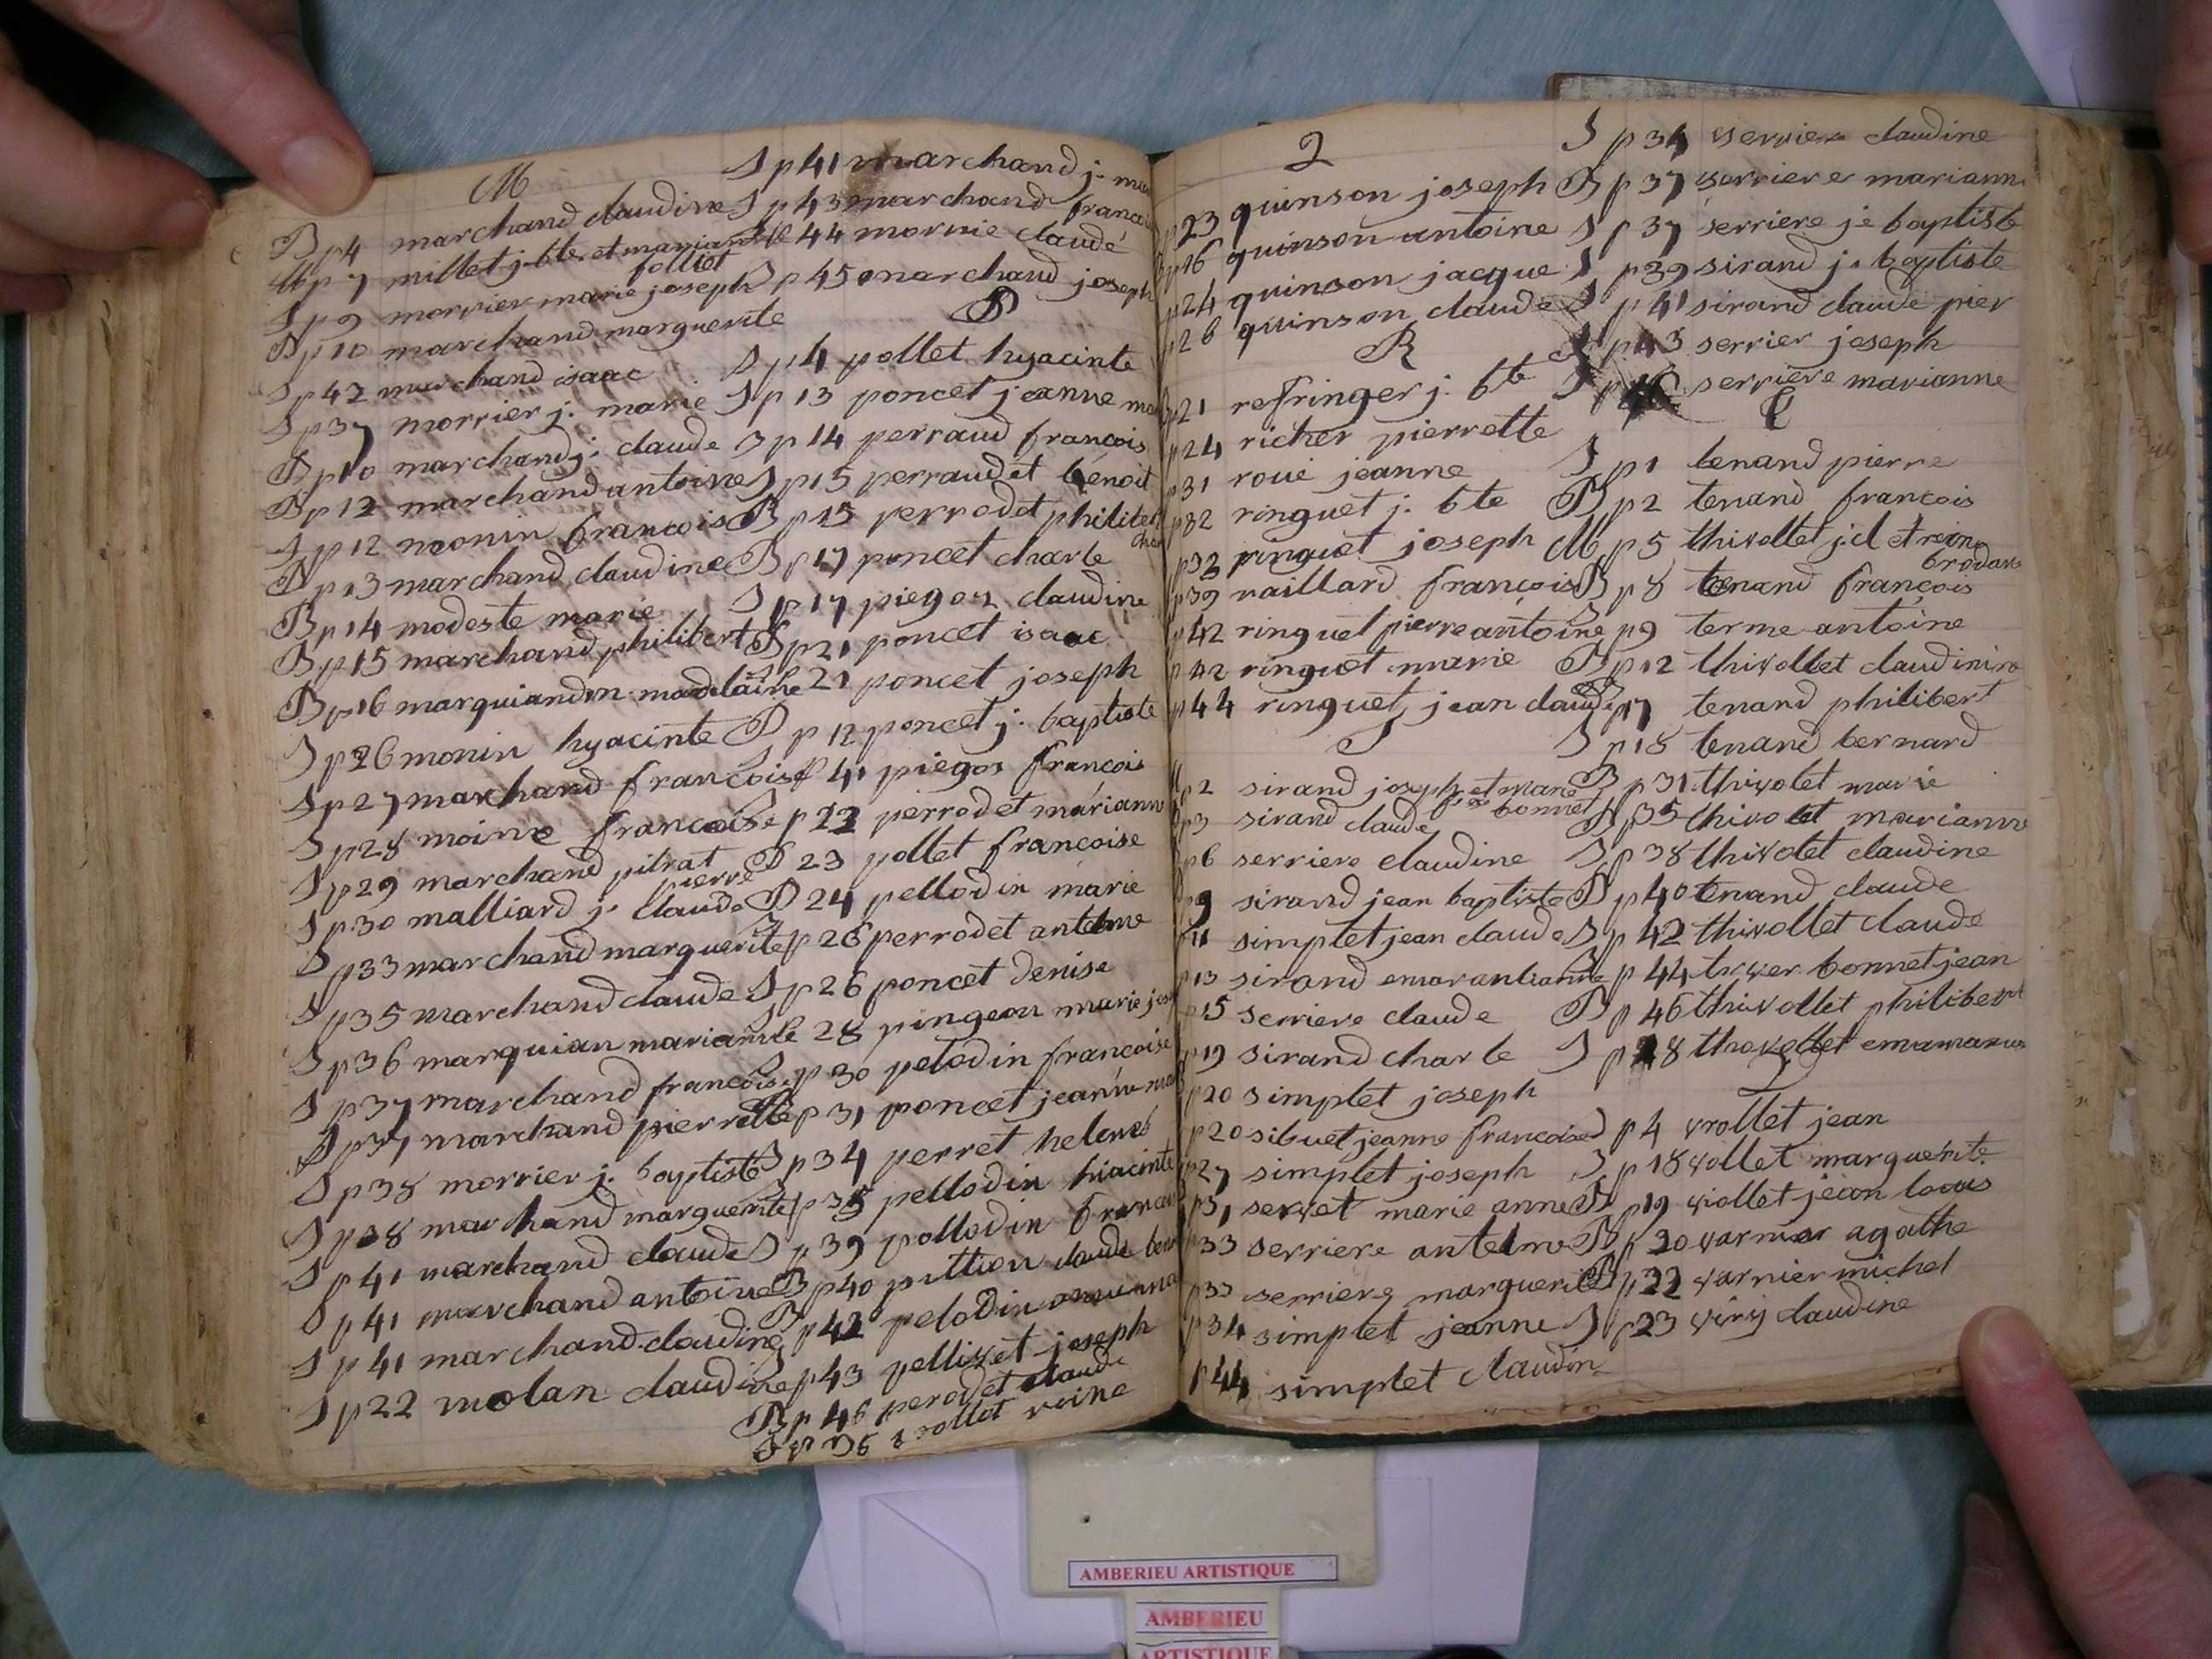 M
B p4 marchand claudine
M p 7 millet j. bte. et mariann
folliet
S p 9 morrier marie joseph
B p 10 marchand marguerite
S p 42 marchand isaac
S p 37 morrier j. marie
B p 10 marchand j. claude
B p 12 marchand antoine
S p 12 monin francois
B p 13 marchand claudine
B p 14 modeste marie
B p 15 marchand philibert
B p 16 marquiandin madelaine
S p 26 monin hyacinte
S p 27 marchand francois
S p 28 moine francoise
S p 29 marchand pitrat
pierre
S p 30 malliard j. claude
S p 33 marchand marguerite
S p 35 marchand claude
S p 36 marquian mariann
S p 37 marchand francois
S p 37 marchand pierrette
S p 38 morrier j. baptiste
S p 38 marchand marguerite
S p 41 marchand claude
S p 41 marchand antoine
S p 41 marchand claudine
S p 22 molan claudine
S p 41 marchand j.
S p 43 marchand
p 44 morrie claude
B p 45 marchand joseph
P
S p 4 pollet hyacinte
S p 13 poncet jeanne
S p 14 perraud francois
S p 15 perraudet benoit
B p 15 perrodet
B p 17 poncet charle
S p 17 piegoz claudine
B p 21 poncet isaac
p 21 poncet joseph
B p 12 poncet j. baptiste
p 41 piegos francois
p 22 perrodet mariann
B 23 pollet francoise
B 24 pellodin marie
p 26 perrodet antelme
S p 26 poncet denise
p 28 pingeon marie
p 30 pelodin francoise
p 31 poncet jeanne
S p 34 perret helene
p 35 pellodin hiacinte
S p 39 pollodin
B p 40 pittion claude
B p 42 pelodin
S p 43 pellivet joseph
B p 46 perodet claude
S p 36 rollet reine
2
p 23 quinson joseph
p 16 quinson antoine
p 24 quinson jacque
p 26 quinson claude
R
p 21 refringer j. bte
p 24 richer pierrette
p 31 roui jeanne
p 32 ringuet j. bte
p 32 ringuet joseph
p 39 raillard françois
p 42 ringuet pierre antoine
p 42 ringuet marie
p 44 ringuet jean claude
S
p 2 sirand joseph et marie
bonnet
p 3 sirand claude
p 6 serriere claudine
p 9 sirand jean baptiste
p 11 simplet jean claude
p 13 sirand
p 15 serriere claude
p 19 sirand charle
p 20 simplet joseph
p 20 sibuet jeanne francoise
p 27 simplet joseph
p 31 servet marie anne
p 33 serriere antelme
p 33 serriere marguerite
p 34 simplet jeanne
p 44 simplet claudin
S p 34 serriere claudine
B p 37 serriere mariann
S p 37 serriere je baptiste
S p 39 sirand j. baptiste
S p 41 sirand claude pier
S p 43 serrier joseph
S p serriere marianne
T
S p 1 tenand pierre
B p 2 tenand francois
M p 5 thivollet j. cl et reine
brodan
B p 8 tenand françois
S p 9 terme antoine
B p 12 thivollet
p 17 tenand philibert
S p 18 tenand bernard
B p 31 thivolet marie
B p 35 thivolet mariann
S p 38 thivolet claudine
B p 40 tenand claude
S p 42 thivollet claude
S p 44 bonnet jean
B p 46 thivollet philibert
S p 28 thivollet
V
S p 4 vrollet jean
S p 18 vollet marguerite
B p 19 viollet jean louis
B p 20 varnier agathe
B p 22 varnier michel
S p 23 viry claudine
AMBERIEU ARTISTIQUE
AMBERIEU
ARTISTIQUE